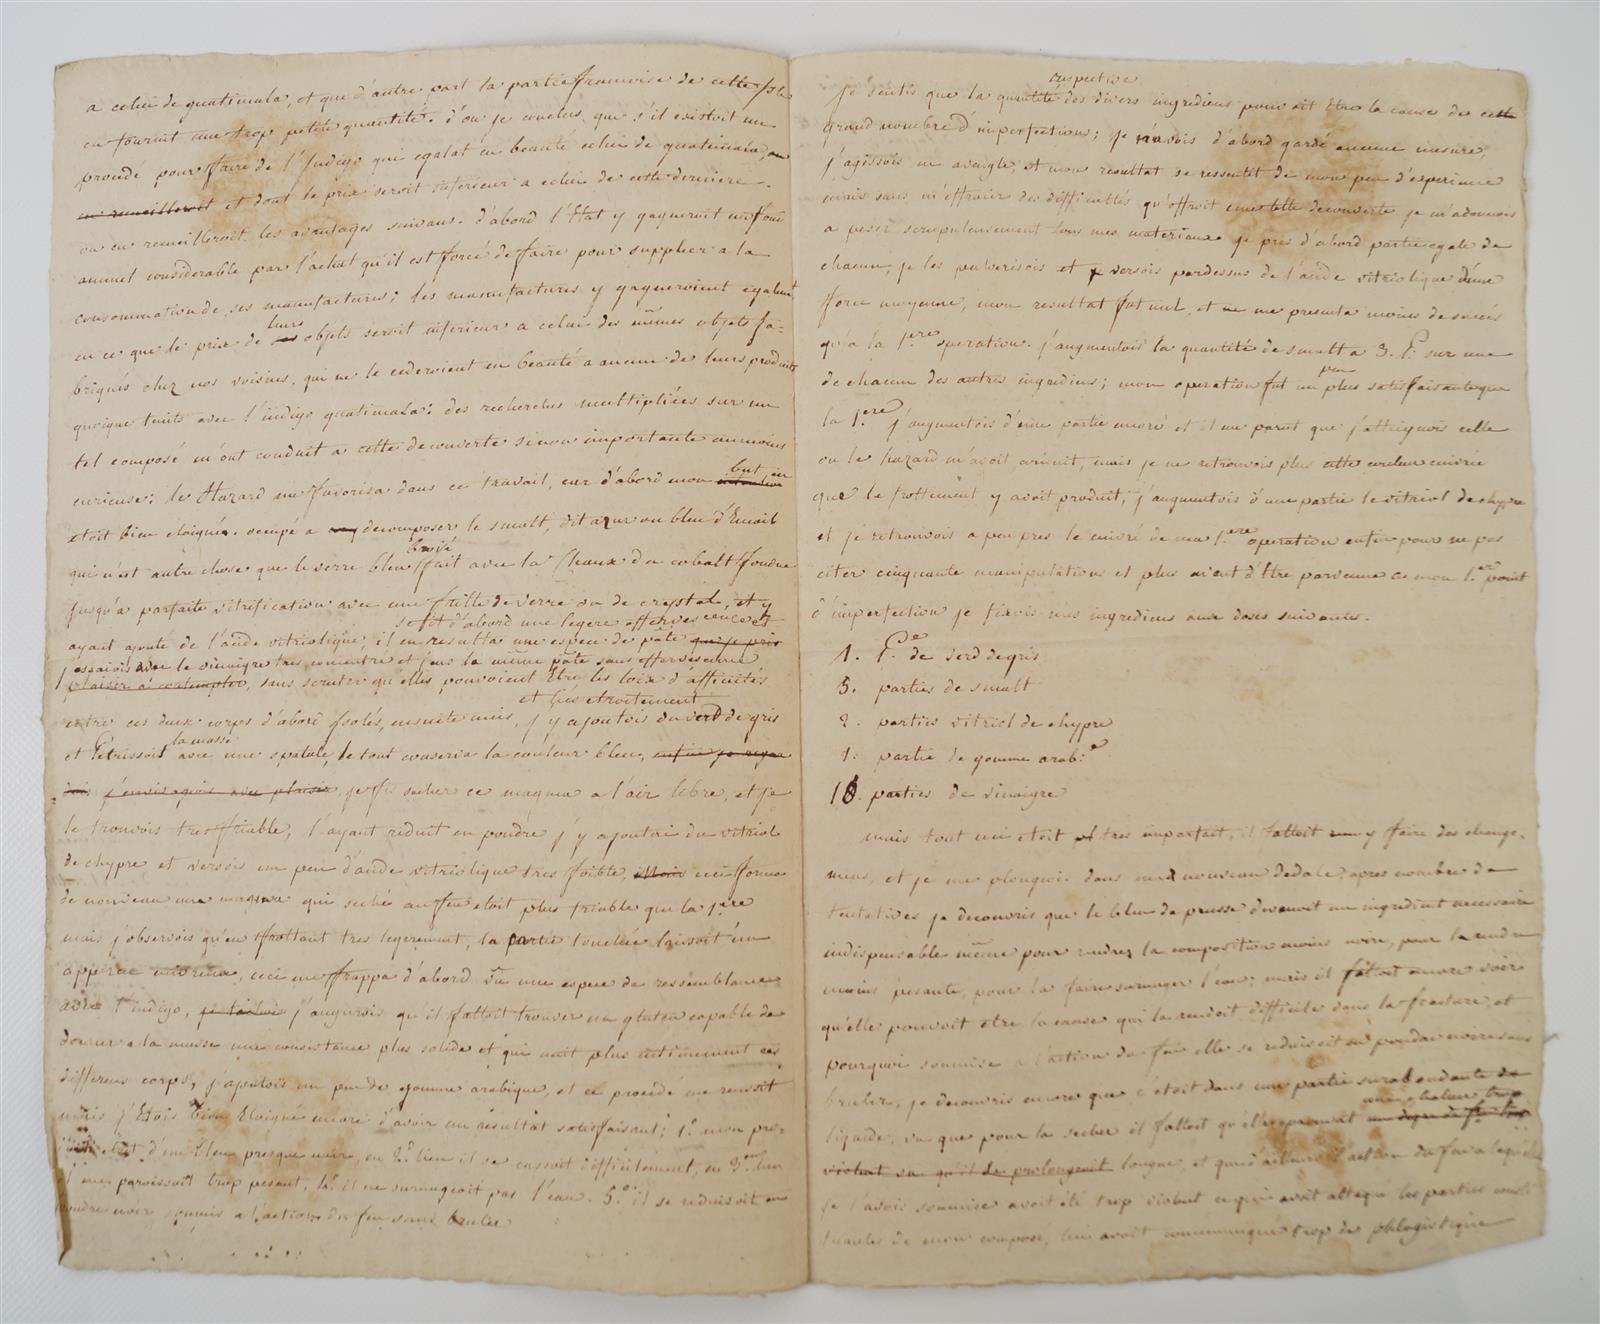 a celui de guatimala, et que d'autre part la partie francoise de cette Isle
en fournit une trop petite quantité. d'ou je conclus que s'il existoit un
procedé pour faire de l'Indigo qui egalat en beauté celui de guatimala, ou
en recueilleroit et dont le prix seroit inferieur a celui de cette derniere.
on en recueilleroit les avantages suivans. d'abord l'Etat y gagneroit un fond
annuel considerable par l'achat qu'il est forcé de faire pour supplier a la
consommation de ses manufactures; les manufactures y gagneroient egalemt
en ce que le prix de leurs objets seroit inferieur a celui des mêmes objets fa=
briqués chez nos voisins, qui ne le cederoient en beauté a aucun de leurs produits
quoique teints avec l'indigo guatimala: des recherches multipliées sur un
tel composé m'ont conduit a cette decouverte sinon importante aumoins
curieuse: le Hazard me favorisa dans ce travail, car d'abord mon but en
etoit bien eloigné. ocupé a decomposer le smalt, dit azur ou bleu d'Email
qui n'est autre chose que le verre bleu broié fait avec la Chaux du cobalt fondue
jusqu'a parfaite vitrification avec une fritte de verre ou de crystal, et y
se fit d'abord une legere effervescence et
ayant ajouté de l'acide vitriolique, il en resulta une espece de pate que je pris
j'essaiois avec le vinaigre tres concentré et j'eus la même pâte sans effervescence
plaisir a contempler, sans scruter qu'elles pouvoient être les loix d'affinités
et liés etroitement
entre ces deux corps d'abord isolés, ensuite unis, j'y ajoutois du verd de gris
et Petrissois la masse avec une spatule, le tout conserva la couleur bleu, enfin je regar
dois j'envisageois avec plaisir je fis secher ce magma a l'air libre, et je
le trouvois tres friable, l'ayant réduit en poudre j'y ajoutai du vitriol
de chypre et versois un peu d'acide vitriolique tres foible, Mais ceci forma
de nouveau une magma qui seché au feu etoit plus friable que la 1ere
mais j'observois qu'en frottant tres legerement, la partie touchée laissoit un
apperçu cuivreux, ceci me frappa d'abord vu une espece de ressemblance
avec l'indigo, j'augurois qu'il falloit trouver un gluten capable de
donner a la masse une consistance plus solide et qui unit plus intimement ces
differens corps, j'ajoutois un peu de gomme arabique, et ce procedé me reussit
mais j'Etois bien Eloigné encore d'avoir un résultat satisfaisant; 1°. mon pro=
duit etoit d'un bleu presque noir, en 2d. lieu il se cassoit difficilement, en 3eme lieu
il me paroissoit trop pesant, 4°. il ne surnageoit pas l'eau. 5°. il se reduisoit en
poudre noire soumis a l'action du feu sans bruler
respective
Je sentis que la quantité des divers ingrediens pouvoit être la cause de cette
grand nombre d'imperfections; je n'avois d'abord gardé aucune mesure,
j'agissois en aveugle, et mon resultat se ressentit de mon peu d'experience
mais sans m'effraier des difficultés qu'offroit une telle decouverte je m'adonnois
a peser scrupuleusement tous mes materiaux je pris d'abord partie egale de
chacun, je les pulverisois et versois pardessus de l'acide vitriolique d'une
force moyenne, mon resultat fut nul, et ne me presenta moins de succès
qu'a la 1ere operation. j'augmentois la quantité de smalt a 3. P. sur une
de chacun des autres ingrediens; mon operation fut un peu plus satisfaisante que
la 1ere j'augmentois d'une partie encore et il me parut que j'atteignois celle
ou le hazard m'avoit conduit, mais je ne retrouvois plus cette couleur cuivrée
que le frottement y avoit produit, j'augmentois d'une partie le vitriol de chypre
et je retrouvois a peu pres le cuivré de ma 1ere operation enfin pour ne pas
citer cinquante manipulations et plus avant d'être parvenu a mon 1er point
d'imperfection je fixois mes ingrediens aux doses suivantes.
1. Pe. de verd de gris
5. parties de smalt
2. parties vitriol de chypre
1. partie de gomme arab:e
18. parties de vinaigre
mais tout ceci etoit tres imparfait, il falloit y faire des change-
mens, et je me plongeois dans un nouveau dedale, apres nombre de
tentatives je decouvris que le bleu de prusse devenoit un ingredient necessaire
indispensable même pour rendre la composition moins noire, pour la rendre
moins pesante, pour la faire surnager l'eau; mais il falloit encore voir
qu'elle pouvoit etre la cause qui la rendoit difficile dans la fracture, et
pourquoi soumise a l'action du feu elle se reduissoit en poudre noire sans
bruler, je decouvris encore que c'etoit dans une partie surabondante de
une chaleur trop
liquide, vu que pour la secher il falloit qu'elle eprouvat un degre de feu trop
violent ou qu'il se prolongeoit longue, et que d'ailleurs l'action du feu a laquelle
je l'avois soumise avoit été trop violent ce qui avoit attaqué les parties consti
tuantes de mon composé, leur avoit communiqué trop de phlogistique